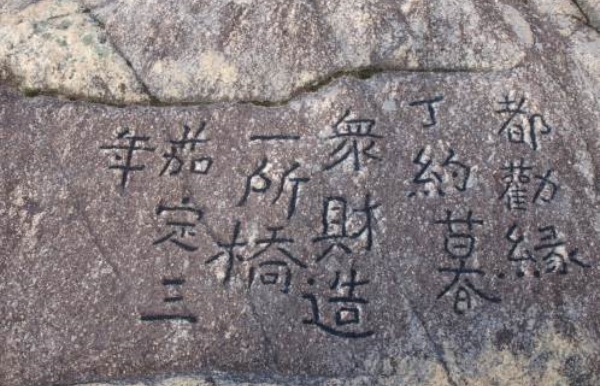 都勸縁
丁約暮
衆財造
一所橋
茄定三
年